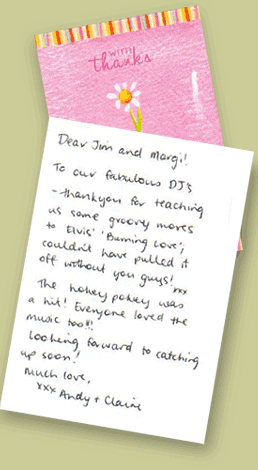 with
thanks
Dear Jim and Margi!
To our fabulous DJ's
- thankyou for teaching
us some groovy moves
to Elvis' 'Burning Love';
couldn't have pulled it
off without you guys! xxx
The hokey pokey was
a hit! Everyone loved the
music too!!!
Looking forward to catching
up soon!
Much love,
xxx Andy + Claire